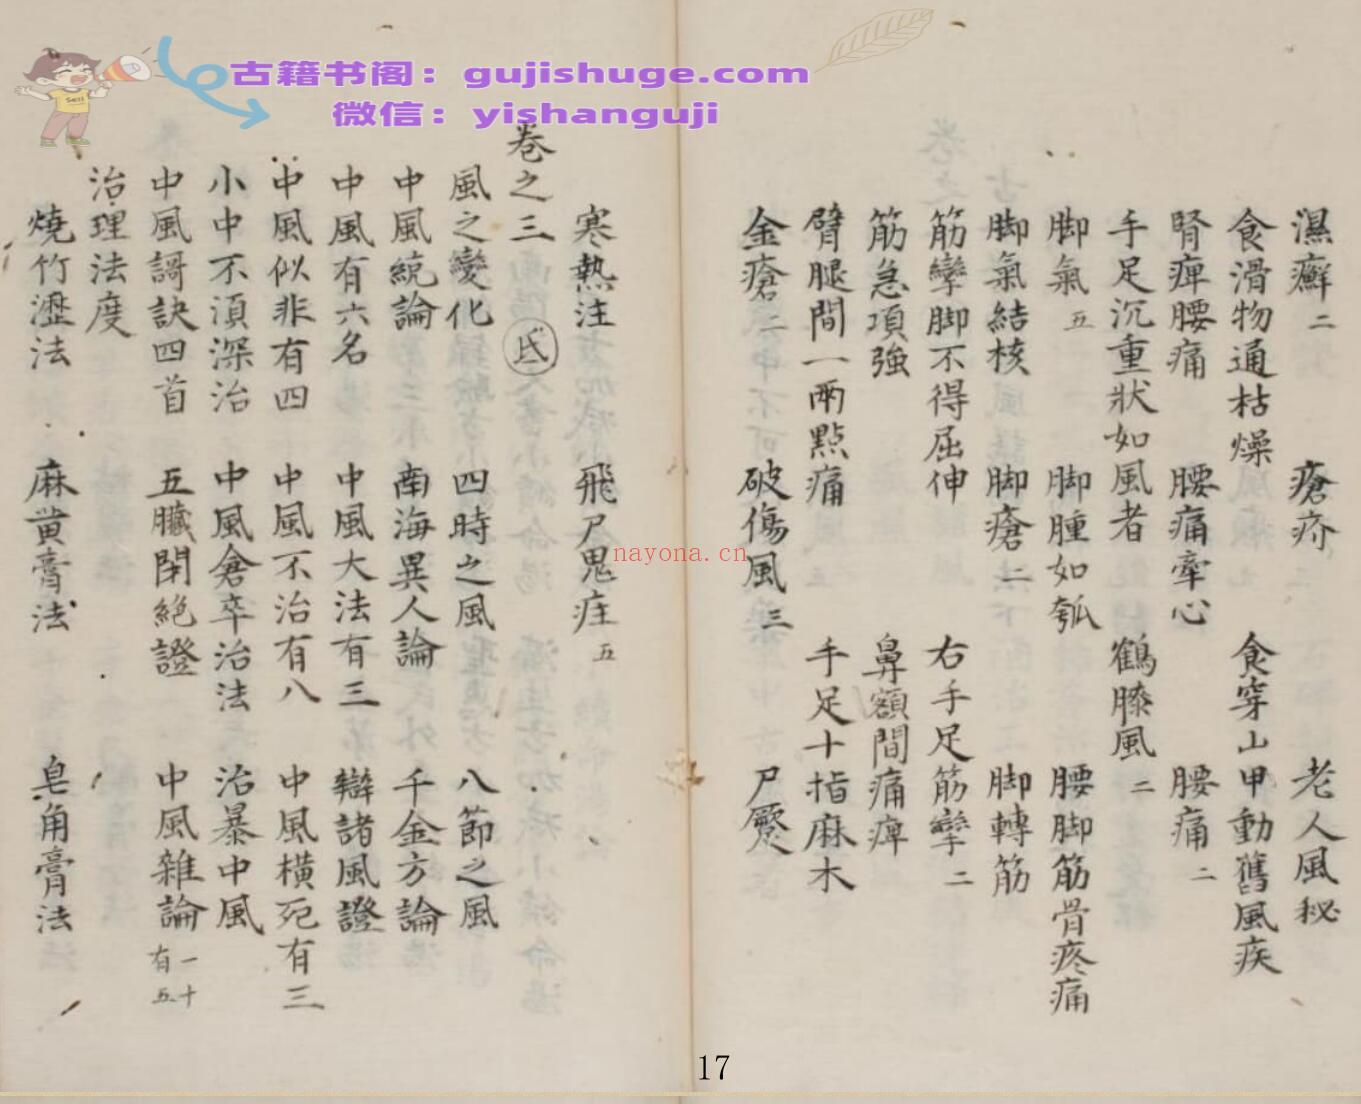 古籍书阁：gujishuge.com
微信：yishanguji
濕癬二 瘡疥 老人風秘
食滑物通枯燥 食穿山甲動舊風疾
腎痺腰痛 腰痛牽心 腰痛二
手足沉重狀如風者 鶴膝風二
脚氣五 脚腫如瓠 腰脚筋骨疼痛
脚氣結核 脚瘡二 脚轉筋
筋攣脚不得屈伸 右手足筋攣二
筋急項強 鼻額間痛痺
臂腿間一兩點痛 手足十指麻木
金瘡二 破傷風三 尸厥
寒熱注 飛尸鬼疰五
卷之三
風之變化 四時之風 八節之風
中風統論 南海異人論 千金方論
中風有六名 中風大法有三 辯諸風證
中風似非有四 中風不治有八 中風橫死有三
小中不須深治 中風倉卒治法 治暴中風
中風謌訣四首 五臟閉絕證 中風雜論有一十五
治理法度
燒竹瀝法 麻黄膏法 皂角膏法
nayona.cn
17